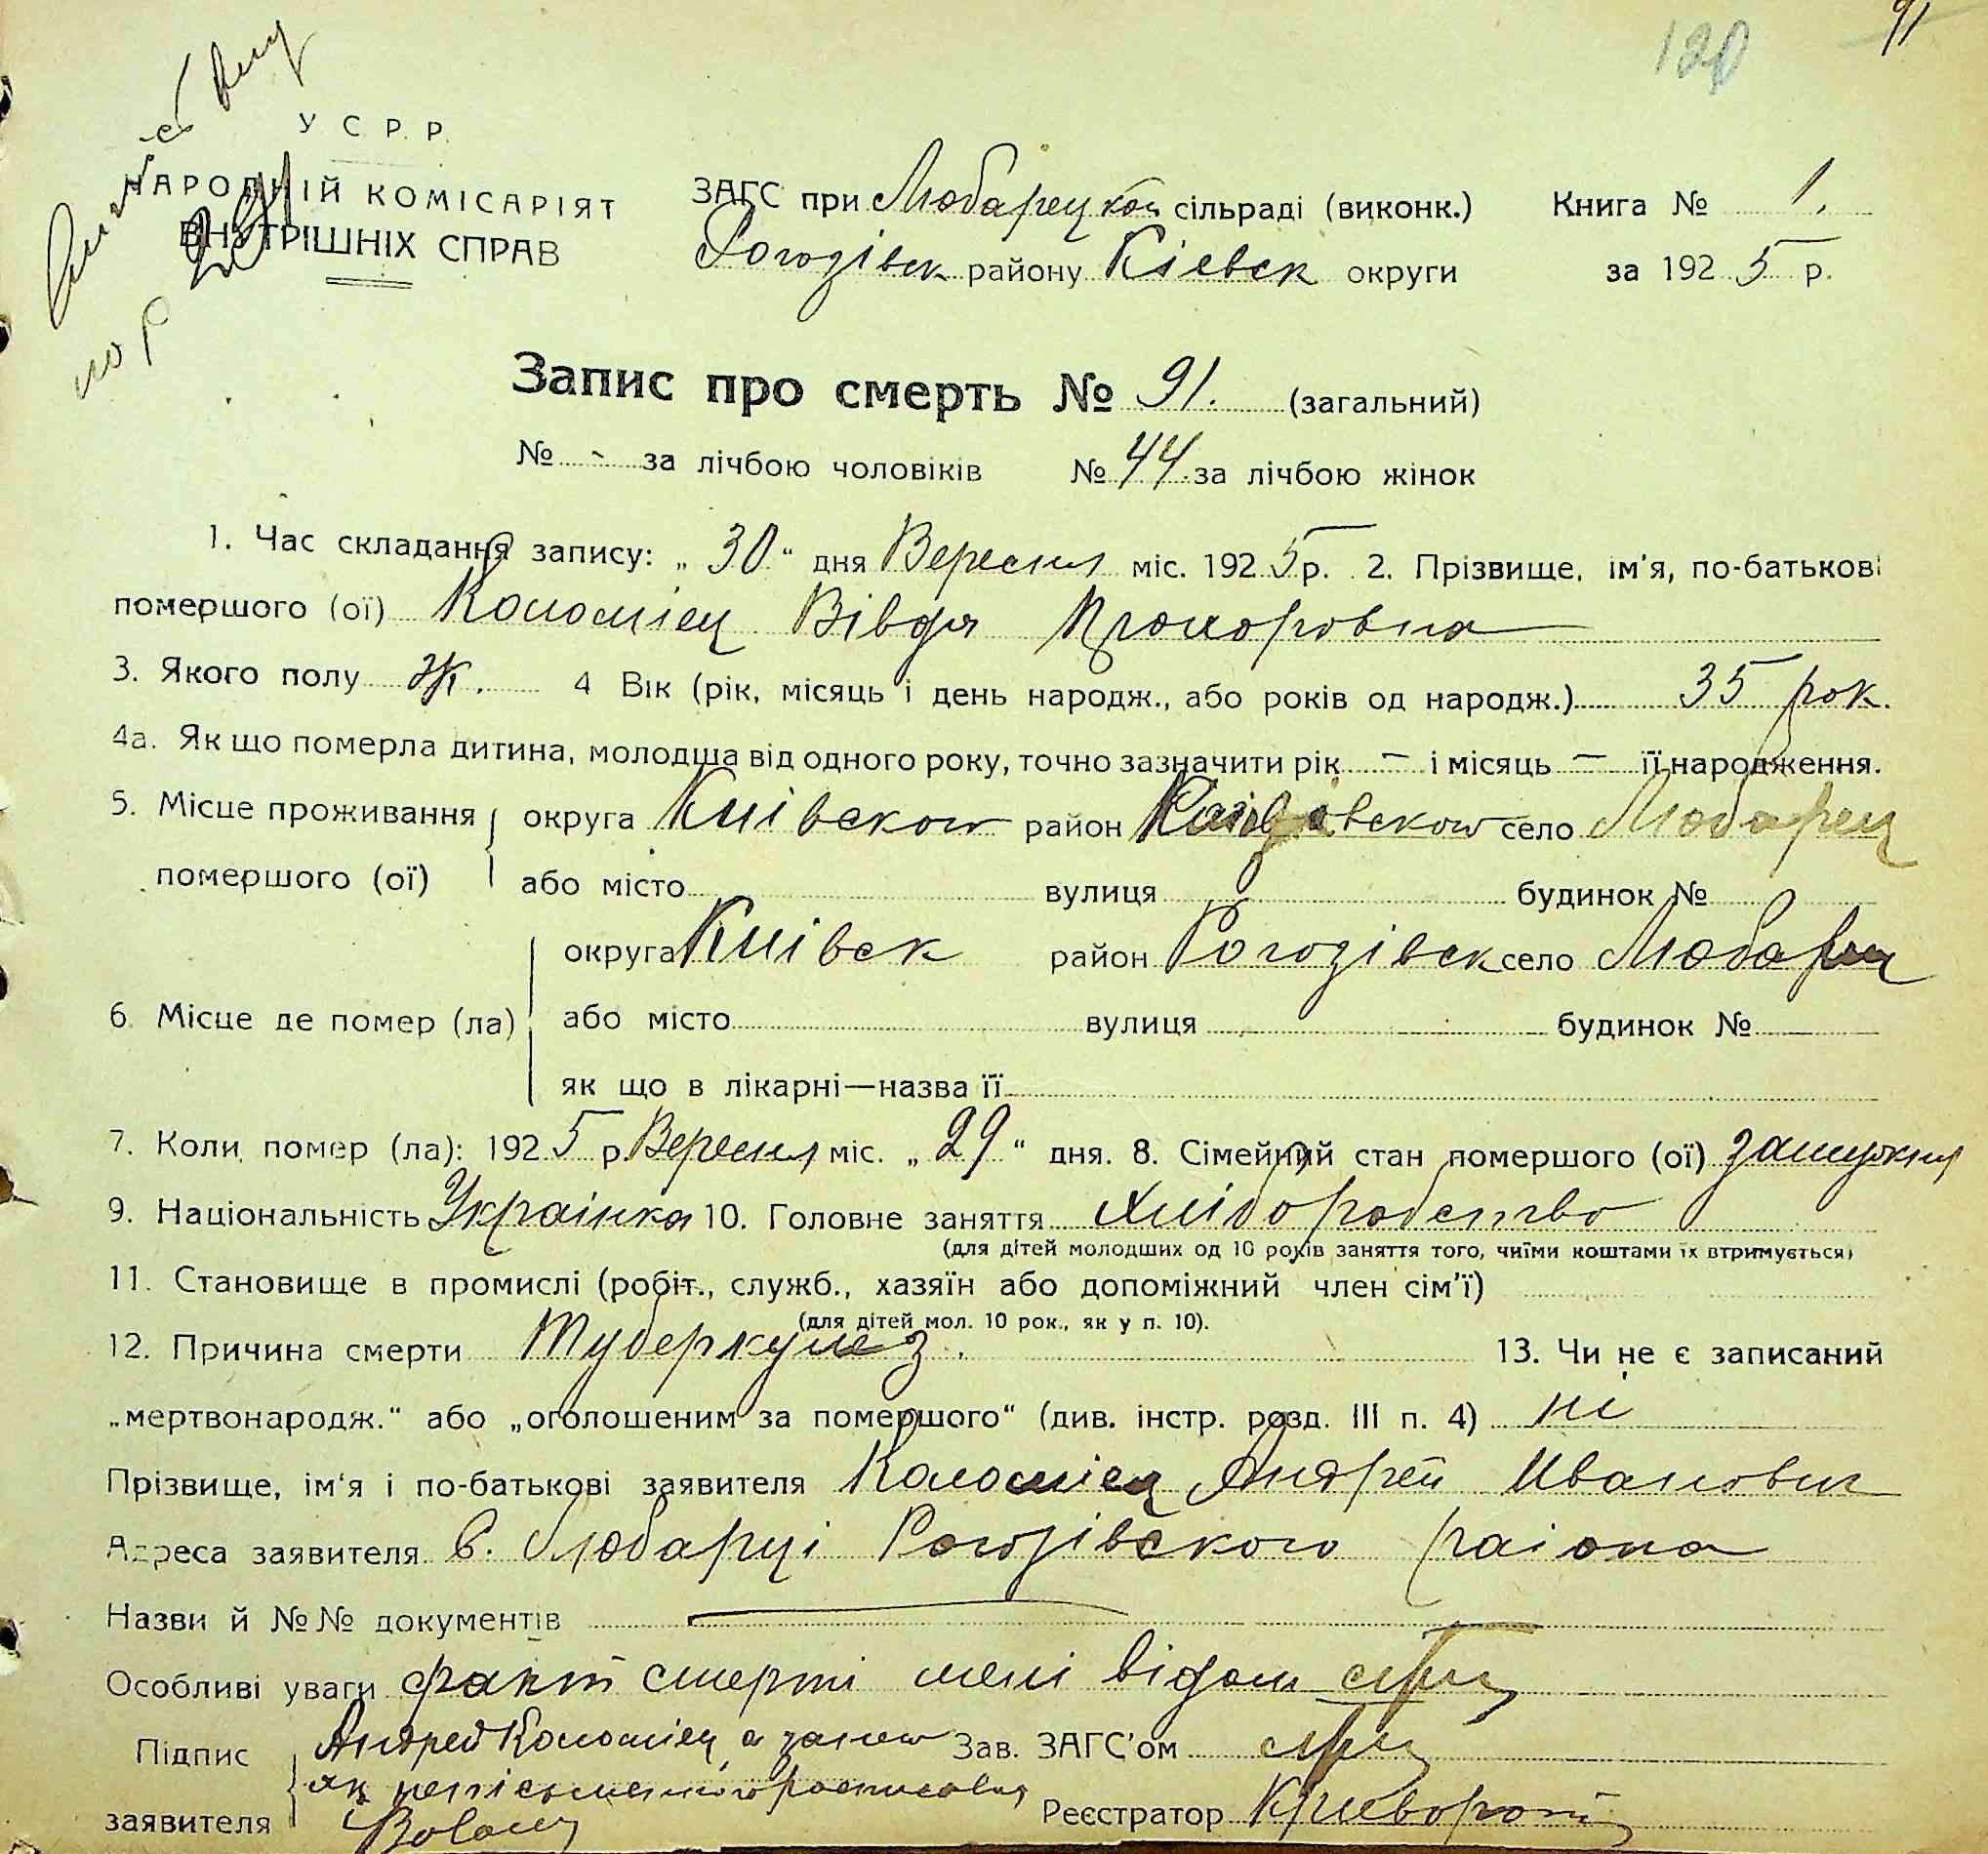 91
120
У С. Р. Р.
НАРОДНІЙ КОМІСАРІЯТ
ВНУТРІШНІХ СПРАВ
ЗАГС при Любарецкой сільраді (виконк.) Книга № 1.
Рогозівск району Кіевск округи за 192 5 р.
Запис про смерть № 91. (загальний)
№ - за лічбою чоловіків № 44. за лічбою жінок
1. Час складання запису: „ 30 “ дня Вересня міс. 192 5 р. 2. Прізвище, ім'я, по-батькові
помершого (ої) Коломіец Вівдя Прохоровна
3. Якого полу ж. 4 Вік (рік, місяць і день народж., або років од народж.) 35 рок.
4а. Як що померла дитина, молодша від одного року, точно зазначити рік — і місяць — її народження.
5. Місце проживання округа Київского район село Любарец
помершого (ої) або місто вулиця будинок №
округа Київск район Рогозівск село Любарец
6. Місце де помер (ла) або місто вулиця будинок №
як що в лікарні—назва її
7. Коли помер (ла): 192 5 р. Вересня міс. „ 29 “ дня. 8. Сімейний стан помершого (ої) замужня
9. Національність Украінка 10. Головне заняття хліборобство
(для дітей молодших од 10 років заняття того, чиїми коштами їх втримується)
11. Становище в промислі (робіт., служб., хазяїн або допоміжний член сім'ї)
(для дітей мол. 10 рок., як у п. 10).
12. Причина смерти Туберкулез. 13. Чи не є записаний
„мертвонародж.“ або „оголошеним за помершого“ (див. інстр. розд. III п. 4) ні
Прізвище, ім'я і по-батькові заявителя Коломіец Андрей Иванович
Адреса заявителя с. Любарці Рогозівского раіона
Назви й №№ документів
Особливі уваги факт смерті мені відом
Підпис Андрей Коломіец а за него Зав. ЗАГС'ом
заявителя як неписьменного росписався Реєстратор